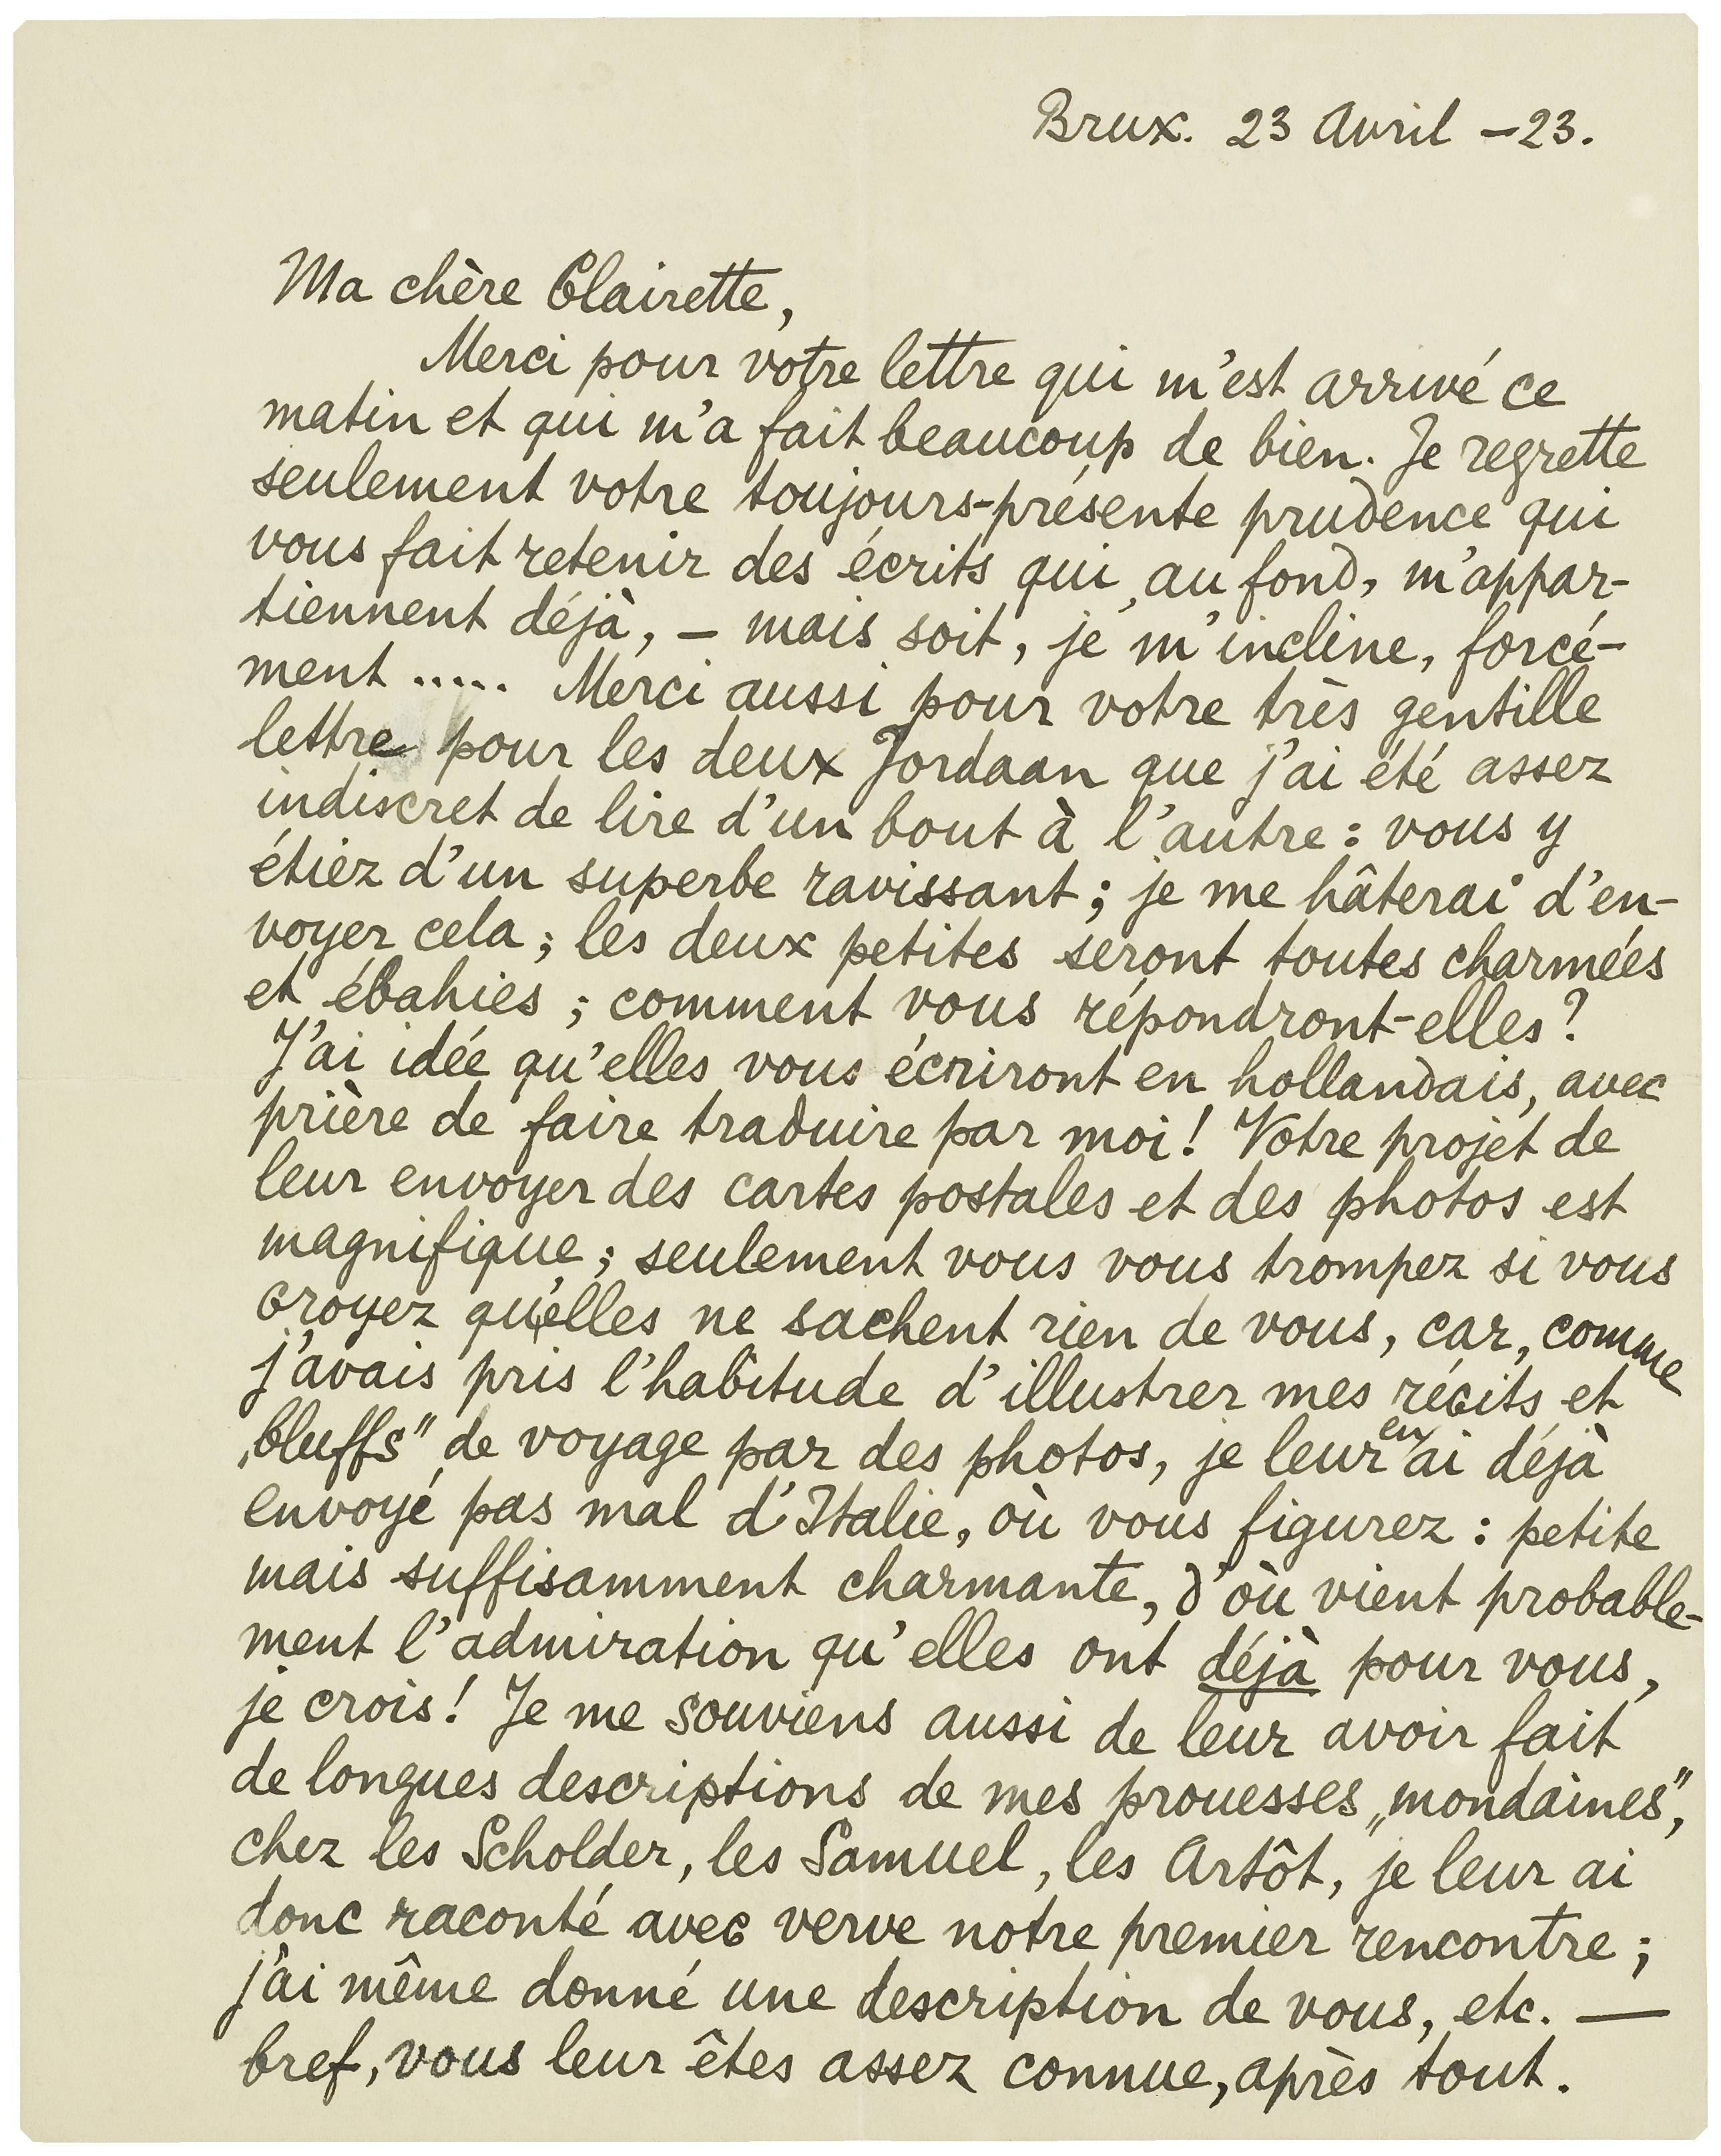 Brux. 23 Avril –23.
Ma chère Clairette,
Merci pour votre lettre qui m'est arrivé ce
matin et qui m'a fait beaucoup de bien. Je regrette
seulement votre toujours-présente prudence qui
vous fait retenir des écrits qui, au fond, m'appar-
tiennent déjà, – mais soit, je m'incline, forcé-
ment ..... Merci aussi pour votre très gentille
lettre pour les deux Jordaan que j'ai été assez
indiscret de lire d'un bout à l'autre: vous y
étiez d'un superbe ravissant; je me hâterai d'en-
voyer cela; les deux petites seront toutes charmées
et ébahies; comment vous répondront-elles?
J'ai idée qu'elles vous écriront en hollandais, avec
prière de faire traduire par moi! Votre projet de
leur envoyer des cartes postales et des photos est
magnifique; seulement vous vous trompez si vous
croyez qu'elles ne sachent rien de vous, car, comme
j'avais pris l'habitude d'illustrer mes récits et
„bluffs” de voyage par des photos, je leur en ai déjà
envoyé pas mal d'Italie, où vous figurez: petite
mais suffisamment charmante, d'où vient probable-
ment l'admiration qu'elles ont déjà pour vous,
je crois! Je me souviens aussi de leur avoir fait
de longues descriptions de mes prouesses „mondaines”,
chez les Scholder, les Samuel, les Artôt, je leur ai
donc raconté avec verve notre premier rencontre;
j'ai même donné une description de vous, etc. —
bref, vous leur êtes assez connue, après tout.